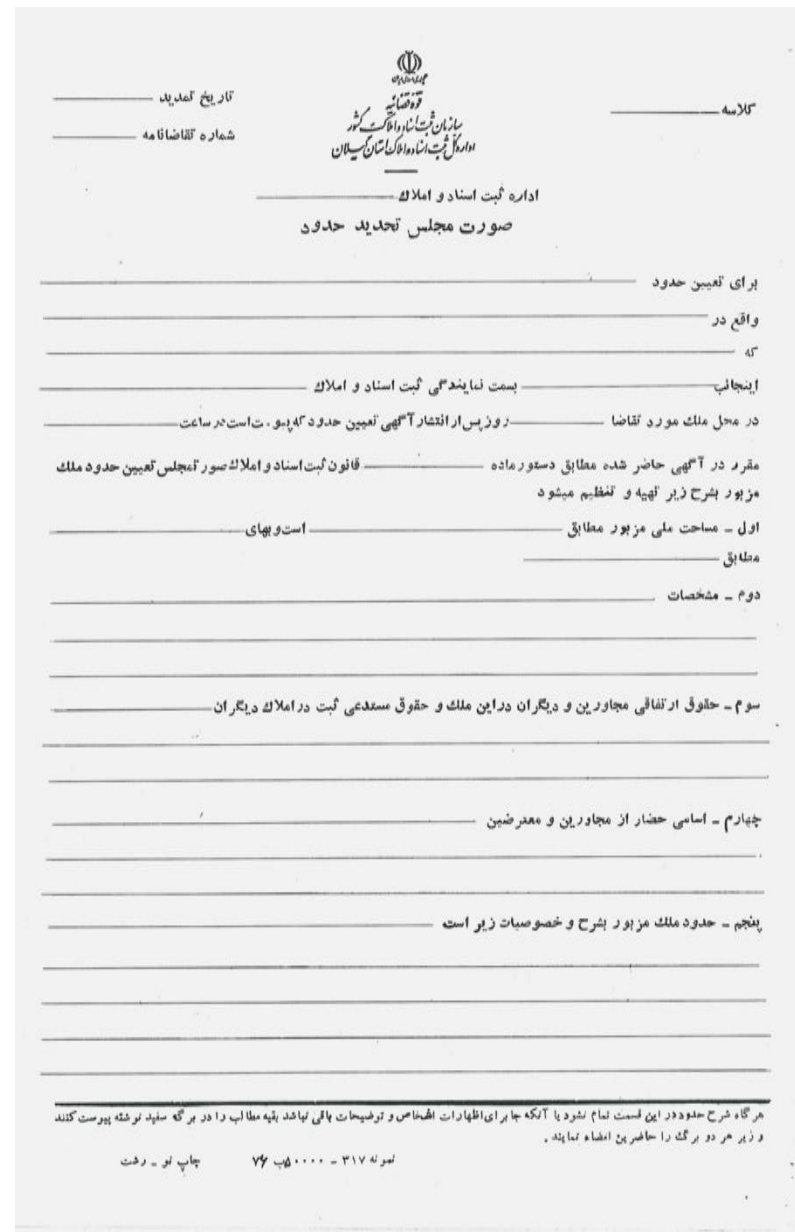 جمهوری اسلامی ایران
قوه قضائیه
سازمان ثبت اسناد و املاک کشور
اداره کل ثبت اسناد و املاک استان گیلان
کلاسه
تاریخ تمدید
شماره تقاضانامه
اداره ثبت اسناد و املاك
صورت مجلس تحدید حدود
برای تعیین حدود
واقع در
که
اینجانب بسمت نمایندگی ثبت اسناد و املاك
در محل ملك مورد تقاضا روز پس از انتشار آگهی تعیین حدود که پیوست است در ساعت
مقرر در آگهی حاضر شده مطابق دستور ماده قانون ثبت اسناد و املاك صورتمجلس تعیین حدود ملك
مزبور بشرح زیر تهیه و تنظیم میشود
اول ـ مساحت ملی مزبور مطابق است و بهای
مطابق
دوم ـ مشخصات
سوم ـ حقوق ارتفاقی مجاورین و دیگران در این ملك و حقوق مستدعی ثبت در املاك دیگران
چهارم ـ اسامی حضار از مجاورین و معترضین
پنجم ـ حدود ملك مزبور بشرح و خصوصیات زیر است
هر گاه شرح حدود در این قسمت تمام نشود یا آنکه جا برای اظهارات اشخاص و توضیحات باقی نباشد بقیه مطالب را در برگه سفید نوشته پیوست کنند
و زیر هر دو برگ را حاضرین امضاء نمایند .
نمونه ۳۱۷ ـ ۵۰۰۰۰ب ۷۶ چاپ نو ـ رشت